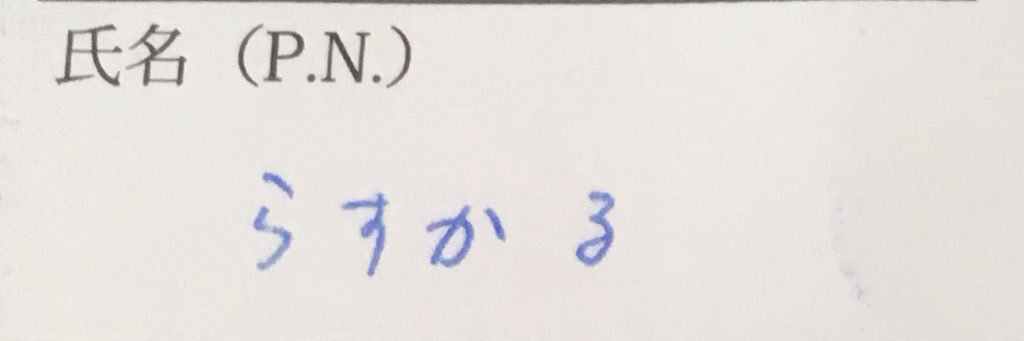 氏名（P.N.）
らすかる